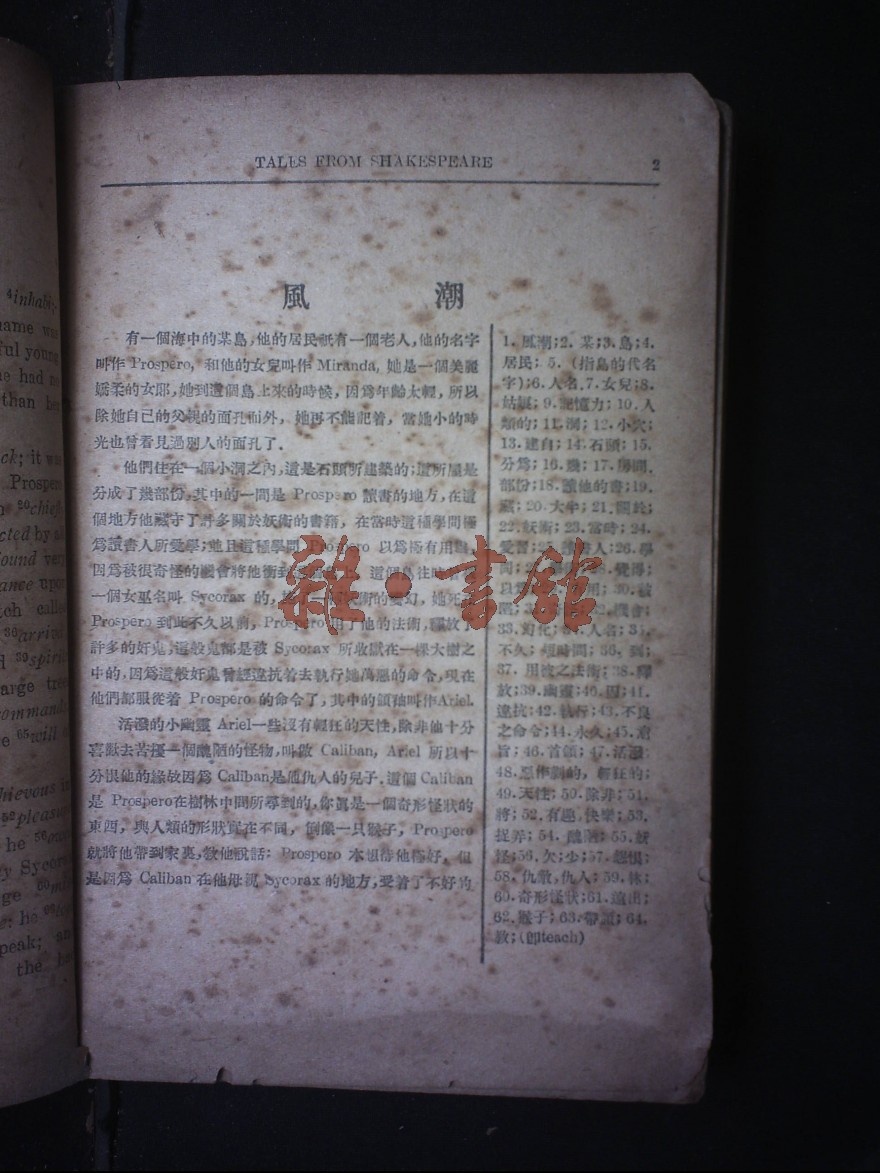 TALES FROM SHAKESPEARE 2
風 潮
有一個海中的某島,他的居民祇有一個老人,他的名字
叫作 Prospero, 和他的女兒叫作 Miranda, 她是一個美麗
嬌柔的女郎,她到這個島上來的時候,因爲年齡太輕,所以
除她自己的父親的面孔而外,她再不能記着,當她小的時
光也曾看見過別人的面孔了.
他們住在一個小洞之內,這是石頭所建築的;這所屋是
分成了幾部份,其中的一間是 Prospero 讀書的地方,在這
個地方他藏守了許多關於妖術的書籍,在當時這種學問極
爲讀書人所愛學;並且這種學問 Prospero 以爲極有用處,
因爲被很奇怪的機會將他衝到 這個島往時
一個女巫名叫 Sycorax 的, 的變幻,她死
Prospero 到此不久以前, Prospero 用了他的法術,釋放了
許多的好鬼,這般鬼都是被 Sycorax 所收獄在一棵大樹之
中的,因爲這般好鬼曾經違抗着去執行她萬惡的命令,現在
他們都服從着 Prospero 的命令了,其中的領袖叫作Ariel.
活潑的小幽靈 Ariel一些沒有輕狂的天性,除非他十分
喜歡去苦擾一個醜陋的怪物,叫做 Caliban, Ariel 所以十
分恨他的緣故因爲 Caliban是他仇人的兒子.這個 Caliban
是 Prospero在樹林中間所尋到的,你眞是一個奇形怪狀的
東西,與人類的形狀實在不同,倒像一只猴子, Prospero
就將他帶到家裏,敎他說話: Prospero 本想待他極好,但
是因爲 Caliban 在他母親 Sycorax 的地方,受着了不好的
1.風潮;2.某;3.島;4.
居民;5.(指島的代名
字);6.人名.7.女兒;8.
姑娘;9.記憶力;10.人
類的;11.洞;12.小穴;
13.建自;14.石頭;15.
分爲;16.幾;17.房間,
部份;18.讀他的書;19.
藏;20.大半;21.關於;
22.妖術;23.當時;24.
愛習;25.讀書人;26.學
問; 覺得;
用;30.被
機會;
33.幻化;34.人名;35.
不久;短時間;36.到;
37.用彼之法術;38.釋
放;39.幽靈;40.囚;41.
違抗;42.執行;43.不良
之命令;44.永久;45.意
旨;46.首領;47.活潑;
48.惡作劇的,輕狂的;
49.天性;50.除非;51.
將;52.有趣,快樂;53.
捉弄;54.醜陋;55.妖
怪;56.欠;少;57.怨恨;
58.仇敵,仇人;59.林;
60.奇形怪狀;61.遠出;
62.猴子;63.帶領;64.
敎;(卽teach)
雜·書館
4inhabi-
name was
ful young
he had no
than her
ck; it was
Prospero
20chief
cted by
ound very
ance upon
tch called
30arrived
39spirits
arge tree
ommands
65will
hievous in
52pleasure
he
Sycorax
60
he
peak; and
the